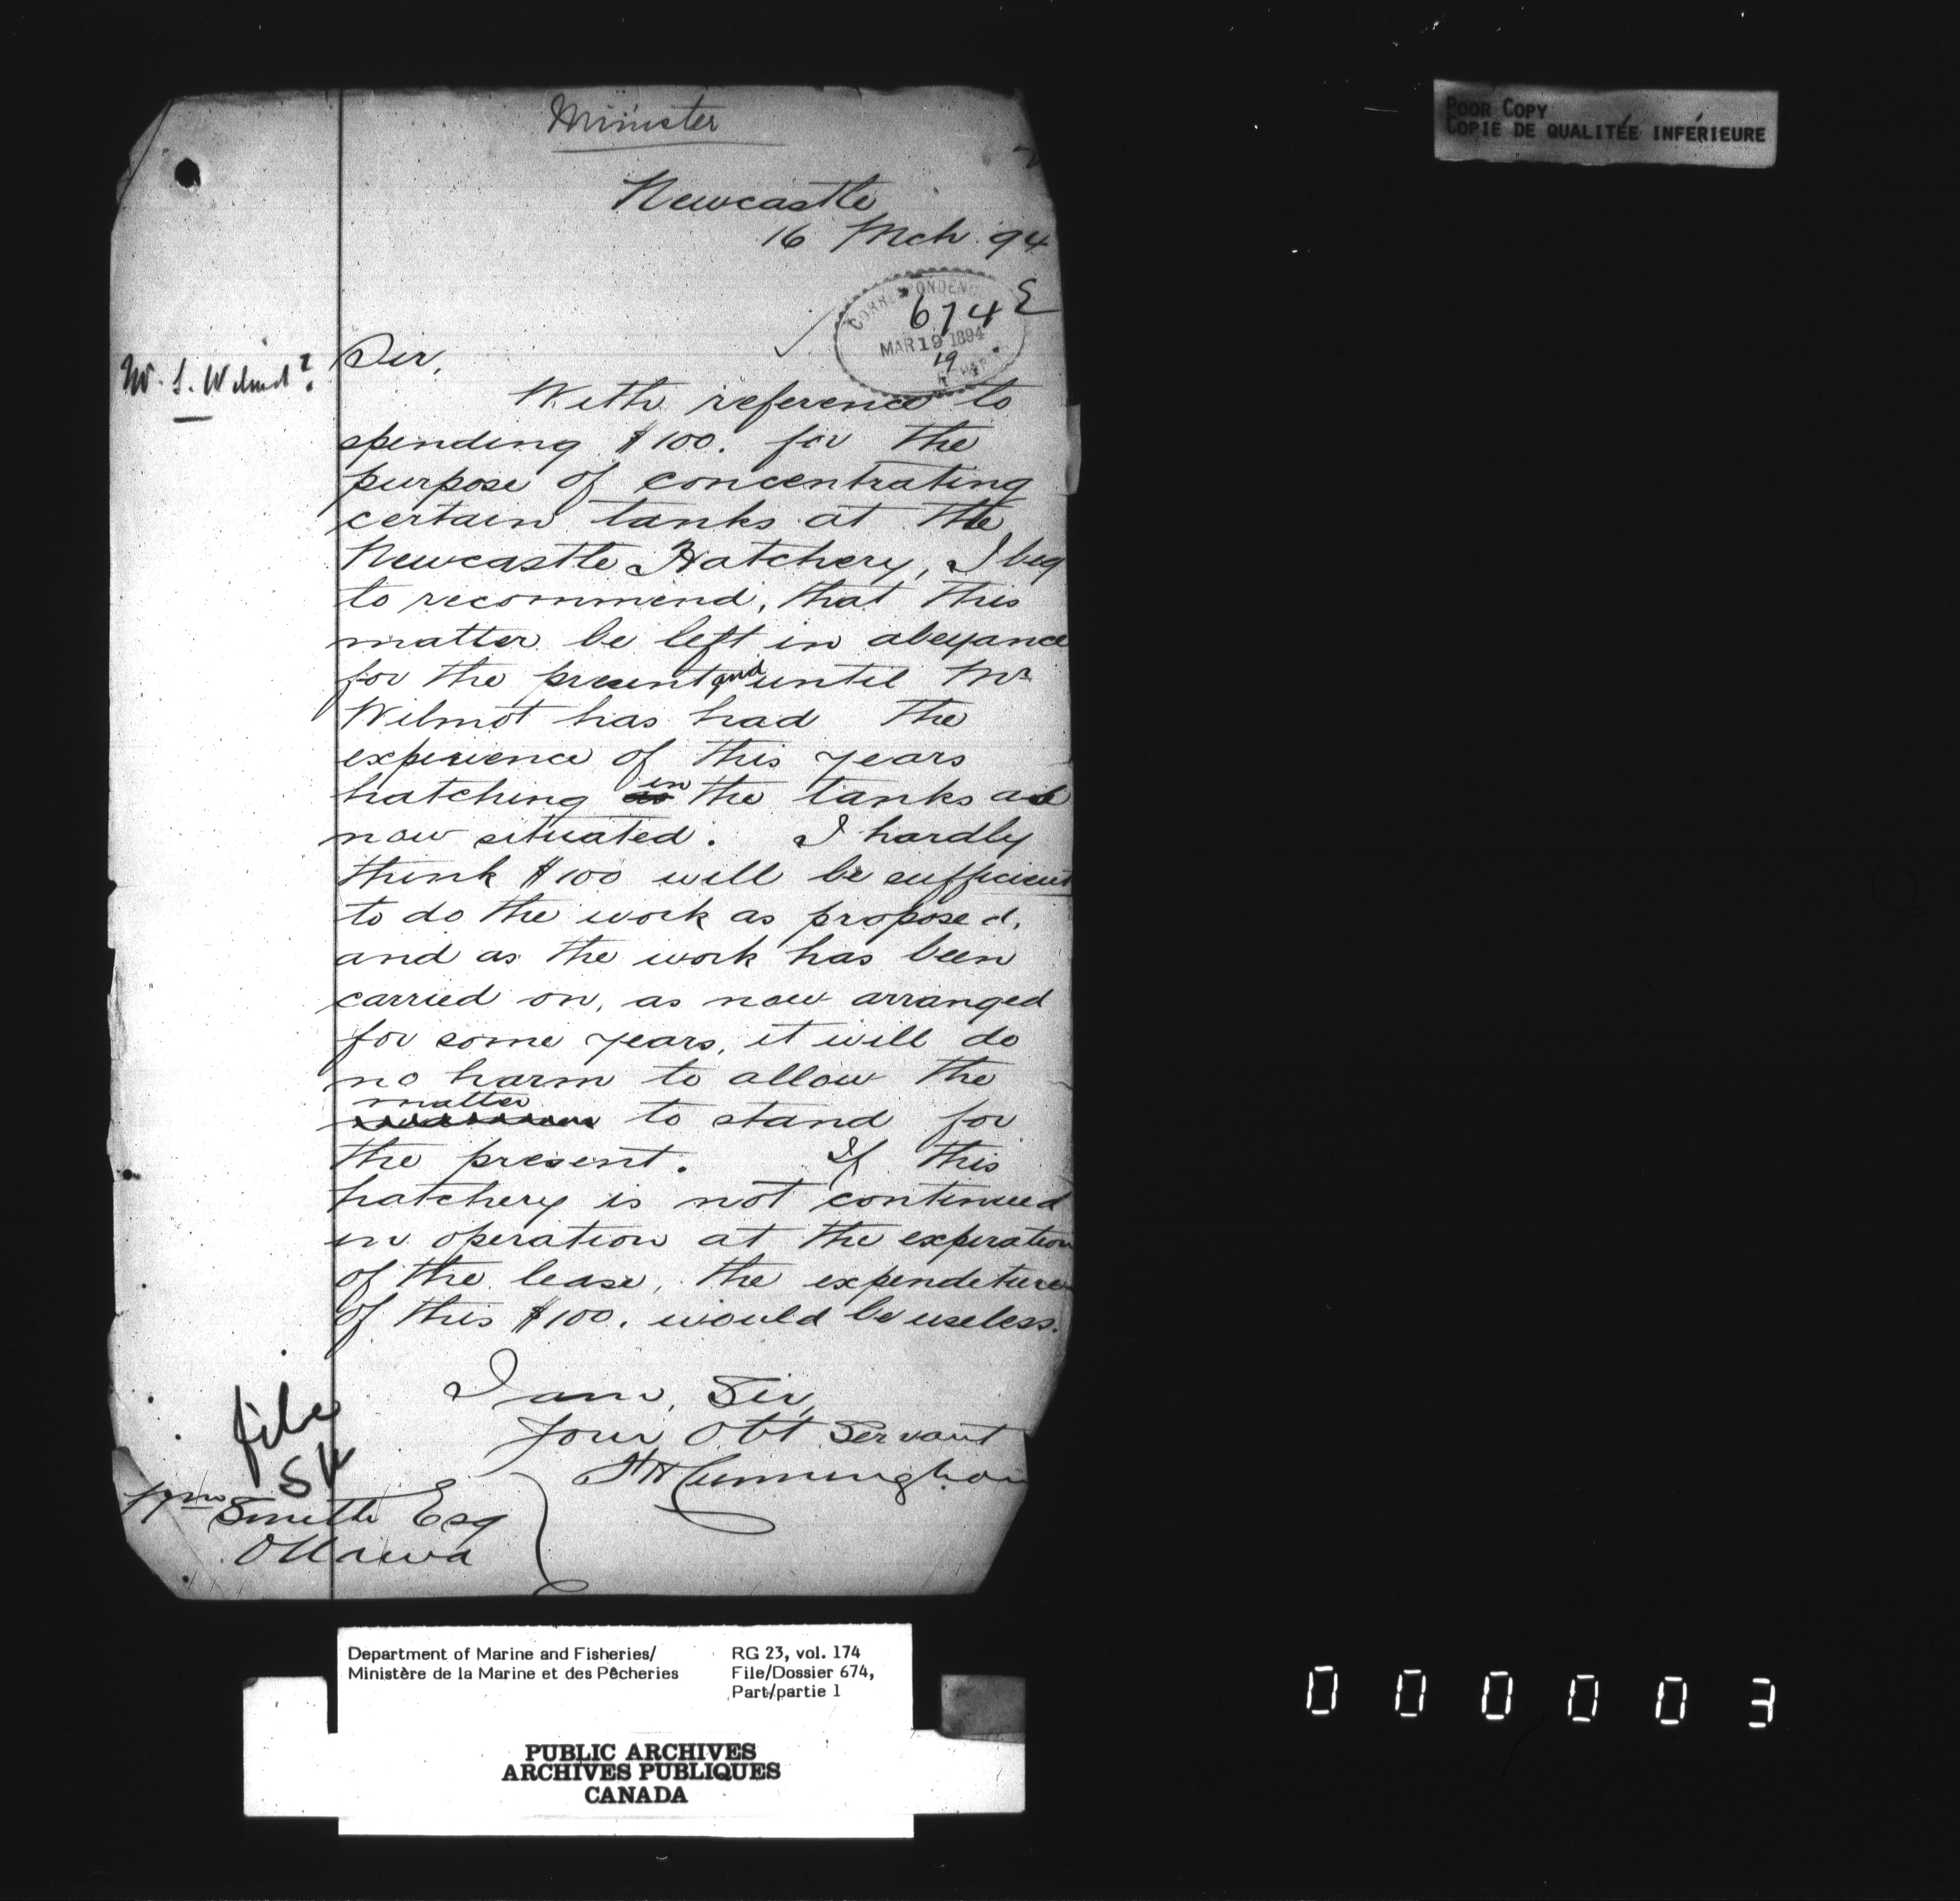 Minister
POOR COPY
COPIE DE QUALITÉE INFÉRIEURE
Newcastle
16 Mch 94
CORRESPONDENCE
674 E
MAR 19 1894
19
Mr. S. Wilmot?
Sir,
With reference to
spending $100. for the
purpose of concentrating
certain tanks at the
Newcastle Hatchery, I beg
to recommend, that this
matter be left in abeyance
for the present and until Mr
Wilmot has had the
experience of this years
hatching in the tanks as
now situated. I hardly
think $100 will be sufficient
to do the work as proposed,
and as the work has been
carried on, as now arranged
for some years, it will do
no harm to allow the
matter to stand for
the present. If this
hatchery is not continued
in operation at the expiration
of the lease, the expenditure
of this $100. would be useless.
I am, Sir,
Your Obt Servant
Cunningham
file
Wm Smith Esq
Ottawa
Department of Marine and Fisheries/
Ministère de la Marine et des Pêcheries
RG 23, vol. 174
File/Dossier 674,
Part/partie 1
PUBLIC ARCHIVES
ARCHIVES PUBLIQUES
CANADA
000003